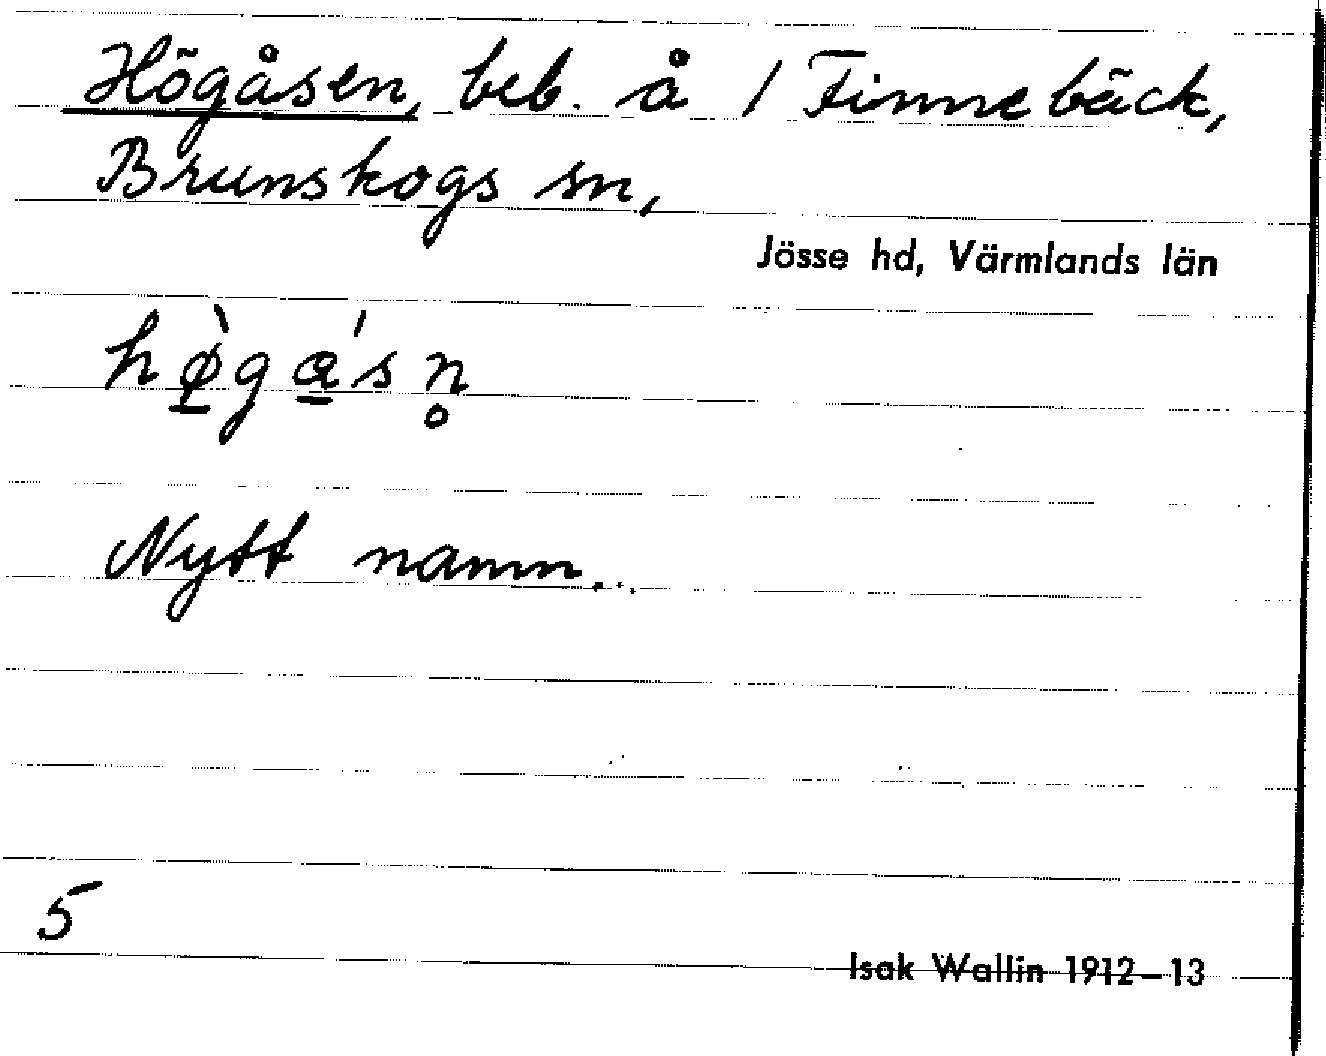 Högåsen, beb. å 1 Finnebäck,
Brunskogs sn,
Jösse hd, Värmlands län
hø̱̀gá̱sn̥
Nytt namn.
5
Isak Wallin 1912–13